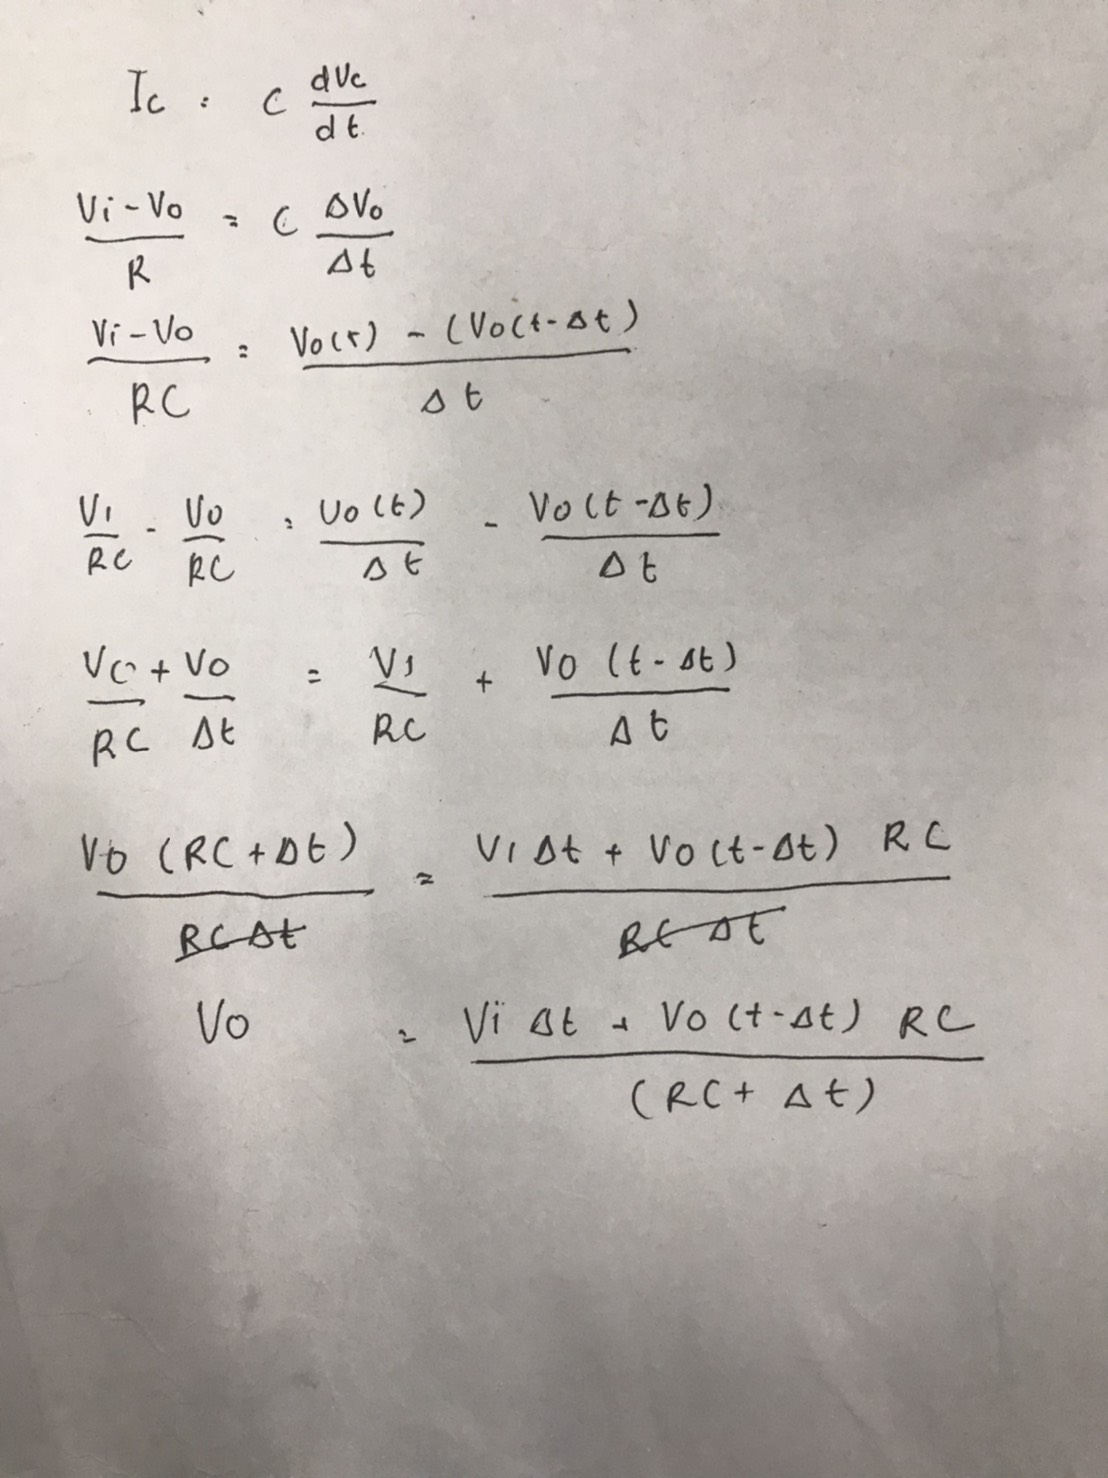 Ic = C dVc/dt
Vi-Vo/R = C ΔVo/Δt
Vi-Vo/RC = Vo(t) - (Vo(t-Δt)/Δt
Vi/RC - Vo/RC = Vo(t)/Δt - Vo(t-Δt)/Δt
Vo/RC + Vo/Δt = Vi/RC + Vo(t-Δt)/Δt
Vo(RC+Δt)/RCΔt = ViΔt + Vo(t-Δt) RC/RCΔt
Vo = Vi Δt + Vo(t-Δt) RC/(RC+Δt)